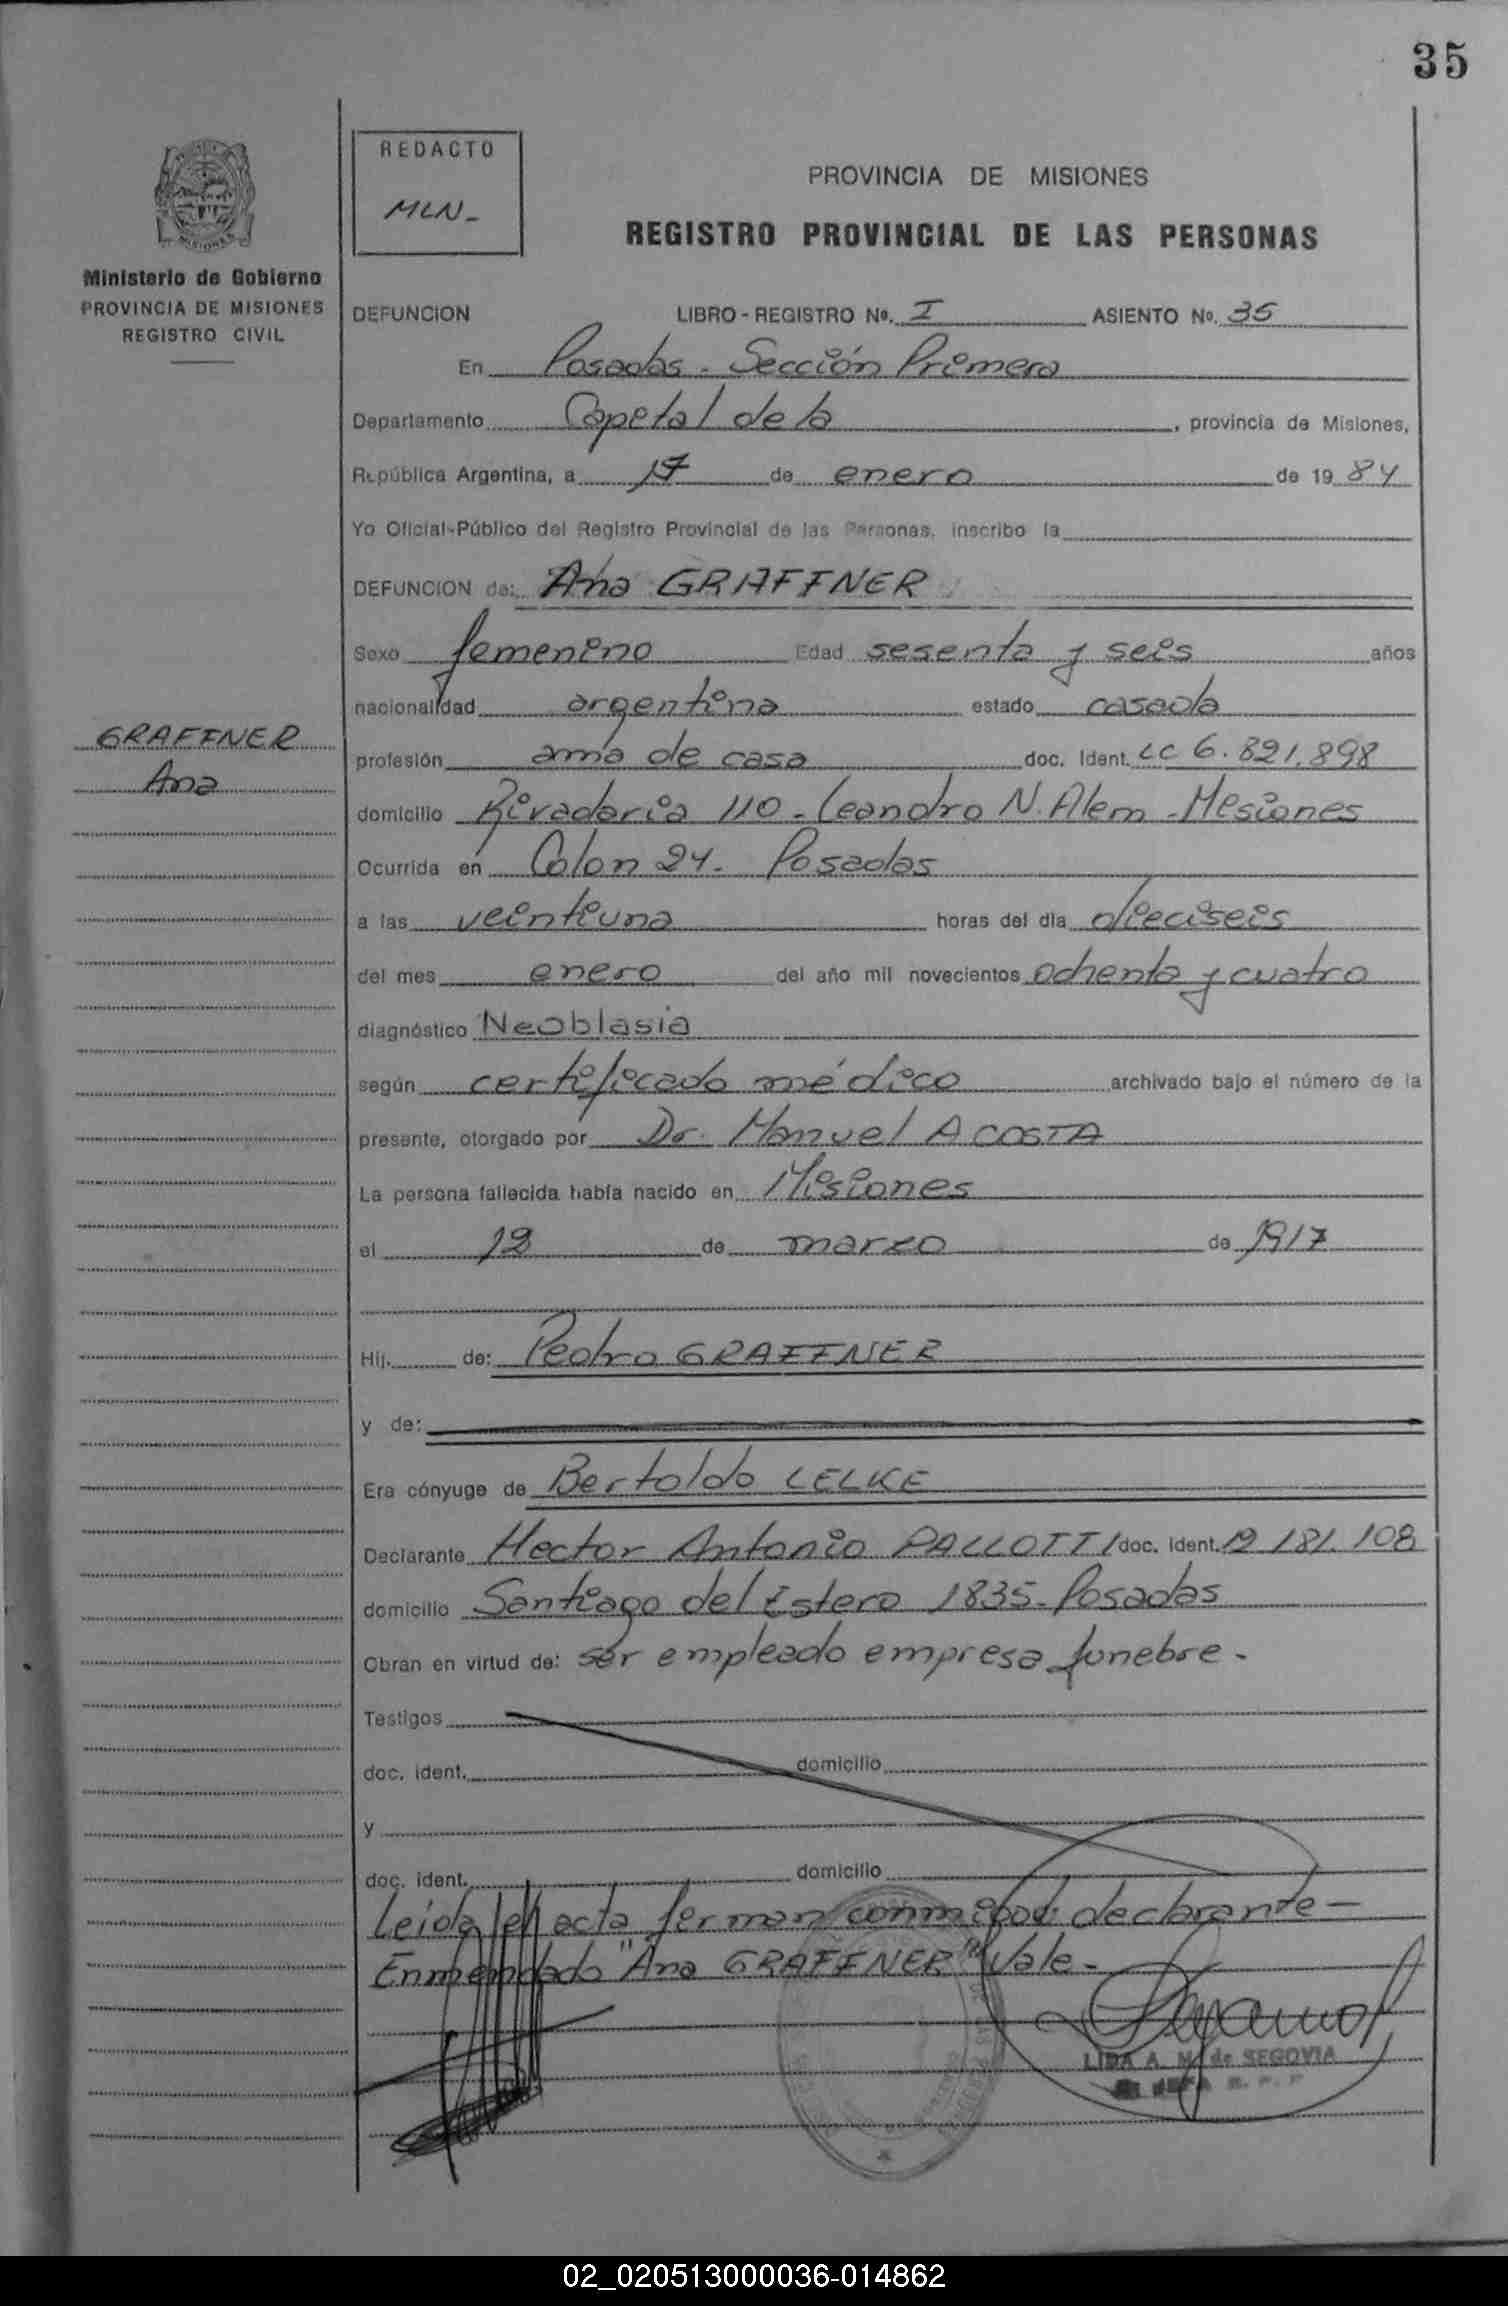 35
REDACTO
MLN-
Ministerio de Gobierno
PROVINCIA DE MISIONES
REGISTRO CIVIL
PROVINCIA DE MISIONES
REGISTRO PROVINCIAL DE LAS PERSONAS
DEFUNCION LIBRO - REGISTRO Nº. I ASIENTO Nº. 35
En Posadas - Sección Primera
Departamento Capital de la, provincia de Misiones,
República Argentina, a 17 de enero de 1984
Yo Oficial-Público del Registro Provincial de las Personas, inscribo la
DEFUNCION de: Ana GRAFFNER
Sexo femenino Edad sesenta y seis años
nacionalidad argentina estado casada
GRAFFNER
Ana
profesión ama de casa doc. Ident. LC 6.821.898
domicilio Rivadavia 110 - Leandro N. Alem - Misiones
Ocurrida en Colon 24. Posadas
a las veintiuna horas del día dieciseis
del mes enero del año mil novecientos ochenta y cuatro
diagnóstico Neoblasia
según certificado médico archivado bajo el número de la
presente, otorgado por Dr. Manuel ACOSTA
La persona fallecida había nacido en Misiones
el 12 de marzo de 1917
Hij. de: Pedro GRAFFNER
y de:
Era cónyuge de Bertoldo LELKE
Declarante Hector Antonio PALLOTTI doc. ident. 12 181.108
domicilio Santiago del Estero 1835. Posadas
Obran en virtud de: ser empleado empresa funebre -
Testigos
doc. ident. domicilio
y
doc. ident. domicilio
Leida el acta firman conmigo declarante -
Enmendado "Ana GRAFFNER" Vale -
LIDA A. N. de SEGOVIA
02_020513000036-014862